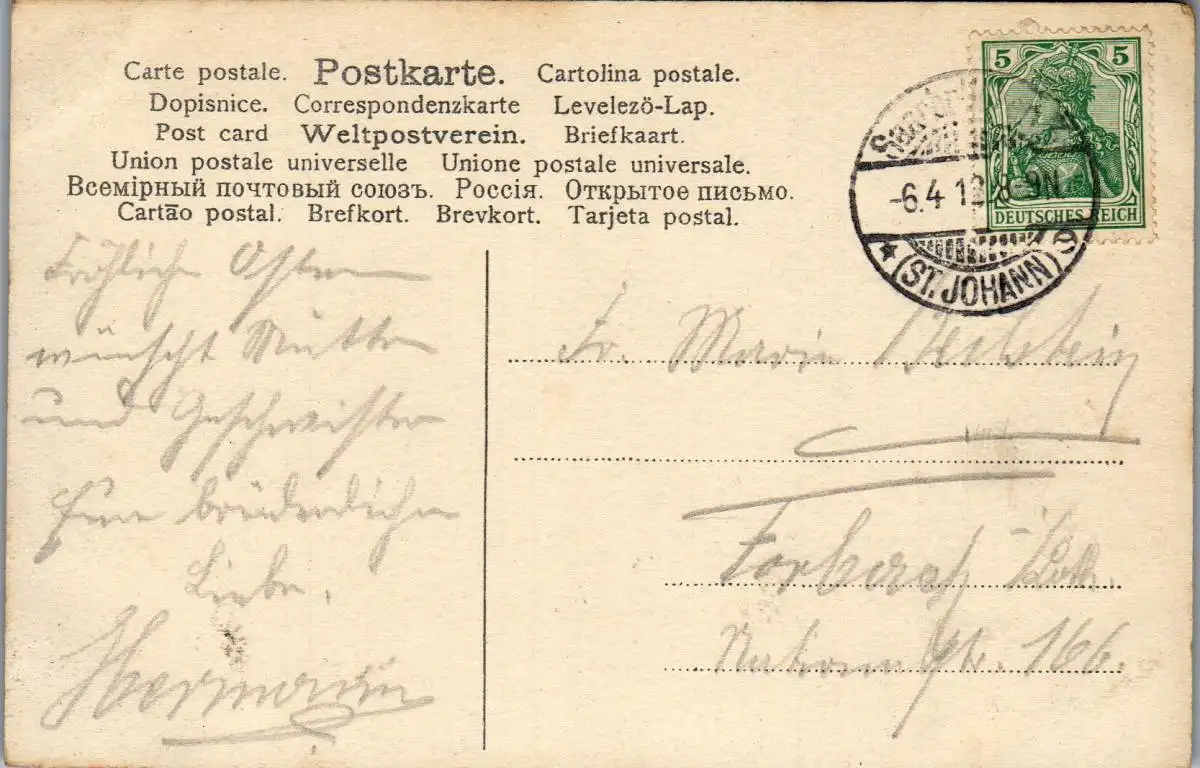 Carte postale. Postkarte. Cartolina postale.
Dopisnice. Correspondenzkarte Levelezö-Lap.
Post card Weltpostverein. Briefkaart.
Union postale universelle Unione postale universale.
Всемірный почтовый союзъ. Россія. Открытое письмо.
Cartão postal. Brefkort. Brevkort. Tarjeta postal.
5 5
DEUTSCHES REICH
-6.4 12.8-9N.
(ST. JOHANN)
Fröhliche Ostern
wünscht Mutter
und Geschwister
brüderliche
Liebe,
Hermann
Fr. Maria
Forbach Loth.
Nationalstr. 166.